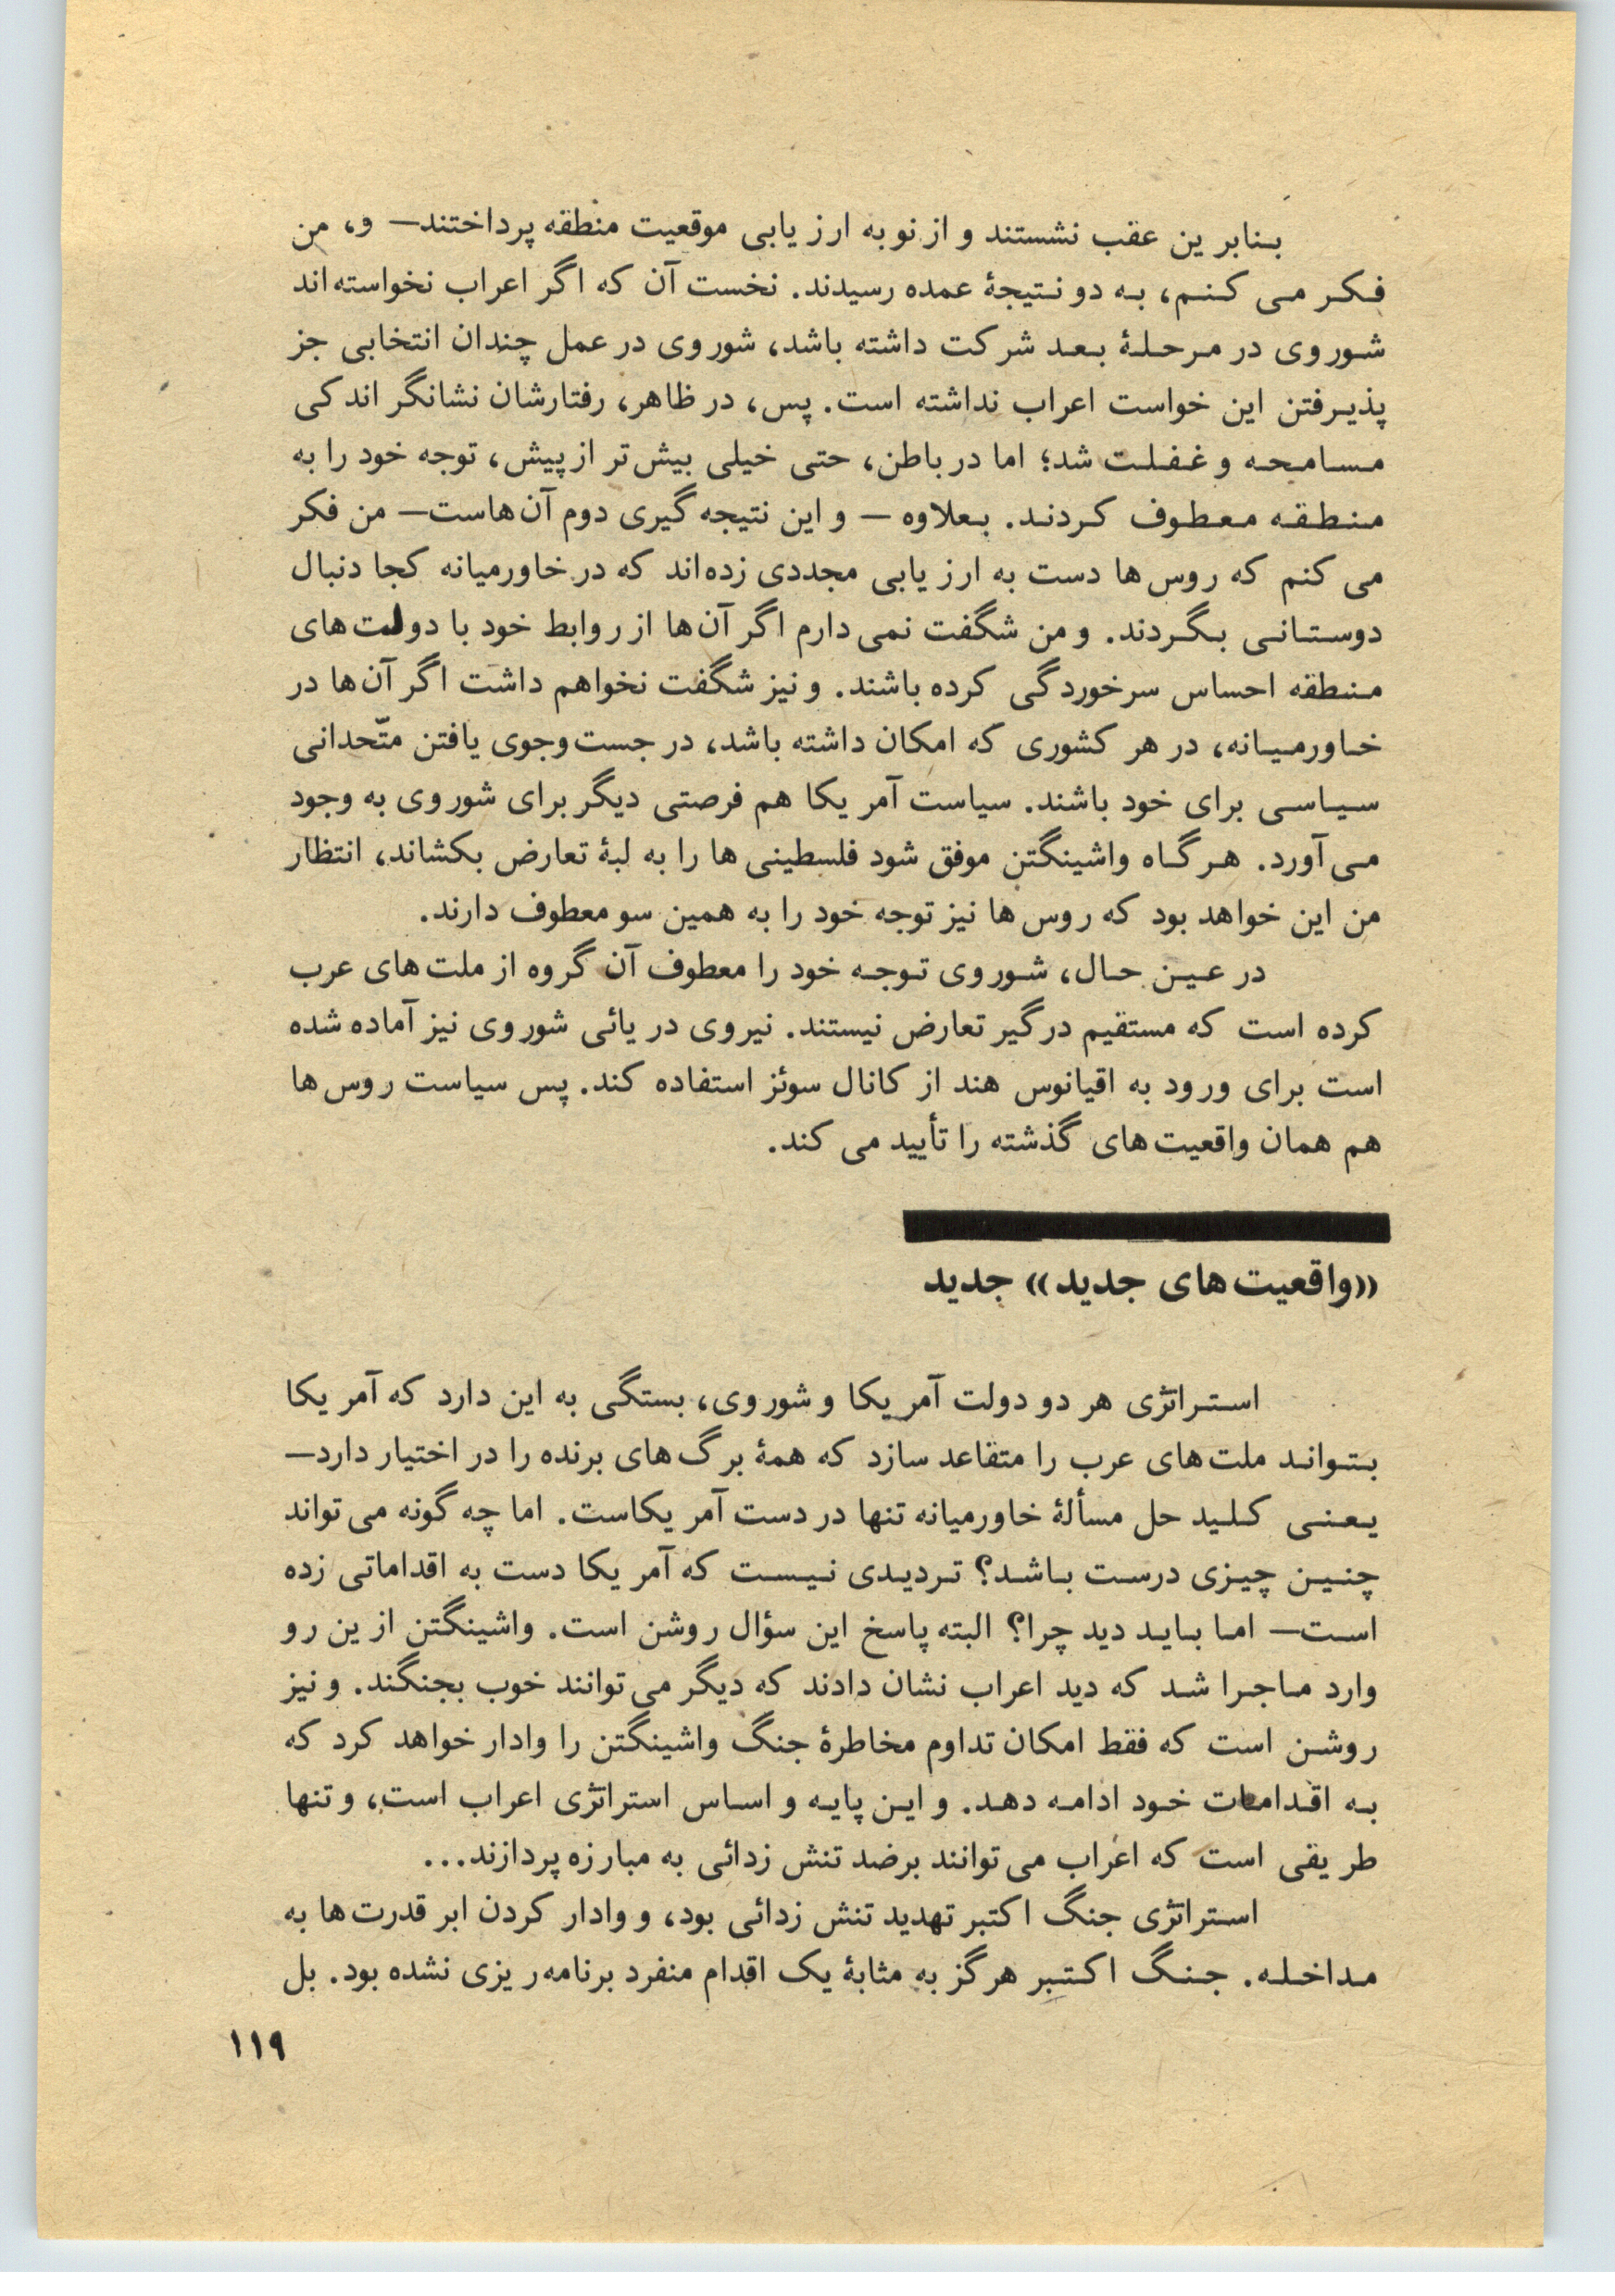 بنابرین عقب نشستند و از نو به ارزیابی موقعیت منطقه پرداختند— و، من
فکر می کنم، به دو نتیجۀ عمده رسیدند. نخست آن که اگر اعراب نخواسته اند
شوروی در مرحلۀ بعد شرکت داشته باشد، شوروی در عمل چندان انتخابی جز
پذیرفتن این خواست اعراب نداشته است. پس، در ظاهر، رفتارشان نشانگر اندکی
مسامحه و غفلت شد؛ اما در باطن، حتی خیلی بیش تر از پیش، توجه خود را به
منطقه معطوف کردند. بعلاوه — و این نتیجه گیری دوم آن هاست— من فکر
می کنم که روس ها دست به ارزیابی مجددی زده اند که در خاورمیانه کجا دنبال
دوستانی بگردند. و من شگفت نمی دارم اگر آن ها از روابط خود با دولت های
منطقه احساس سرخوردگی کرده باشند. و نیز شگفت نخواهم داشت اگر آن ها در
خاورمیانه، در هر کشوری که امکان داشته باشد، در جست وجوی یافتن متّحدانی
سیاسی برای خود باشند. سیاست آمریکا هم فرصتی دیگر برای شوروی به وجود
می آورد. هرگاه واشینگتن موفق شود فلسطینی ها را به لبۀ تعارض بکشاند، انتظار
من این خواهد بود که روس ها نیز توجه خود را به همین سو معطوف دارند.
در عین حال، شوروی توجه خود را معطوف آن گروه از ملت های عرب
کرده است که مستقیم درگیر تعارض نیستند. نیروی دریائی شوروی نیز آماده شده
است برای ورود به اقیانوس هند از کانال سوئز استفاده کند. پس سیاست روس ها
هم همان واقعیت های گذشته را تأیید می کند.
«واقعیت های جدید» جدید
استراتژی هر دو دولت آمریکا و شوروی، بستگی به این دارد که آمریکا
بتواند ملت های عرب را متقاعد سازد که همۀ برگ های برنده را در اختیار دارد—
یعنی کلید حل مسألۀ خاورمیانه تنها در دست آمریکاست. اما چه گونه می تواند
چنین چیزی درست باشد؟ تردیدی نیست که آمریکا دست به اقداماتی زده
است— اما باید دید چرا؟ البته پاسخ این سؤال روشن است. واشینگتن ازین رو
وارد ماجرا شد که دید اعراب نشان دادند که دیگر می توانند خوب بجنگند. و نیز
روشن است که فقط امکان تداوم مخاطرۀ جنگ واشینگتن را وادار خواهد کرد که
به اقدامات خود ادامه دهد. و این پایه و اساس استراتژی اعراب است، و تنها
طریقی است که اعراب می توانند برضد تنش زدائی به مبارزه پردازند...
استراتژی جنگ اکتبر تهدید تنش زدائی بود، و وادار کردن ابر قدرت ها به
مداخله. جنگ اکتبر هرگز به مثابۀ یک اقدام منفرد برنامه ریزی نشده بود. بل
۱۱۹